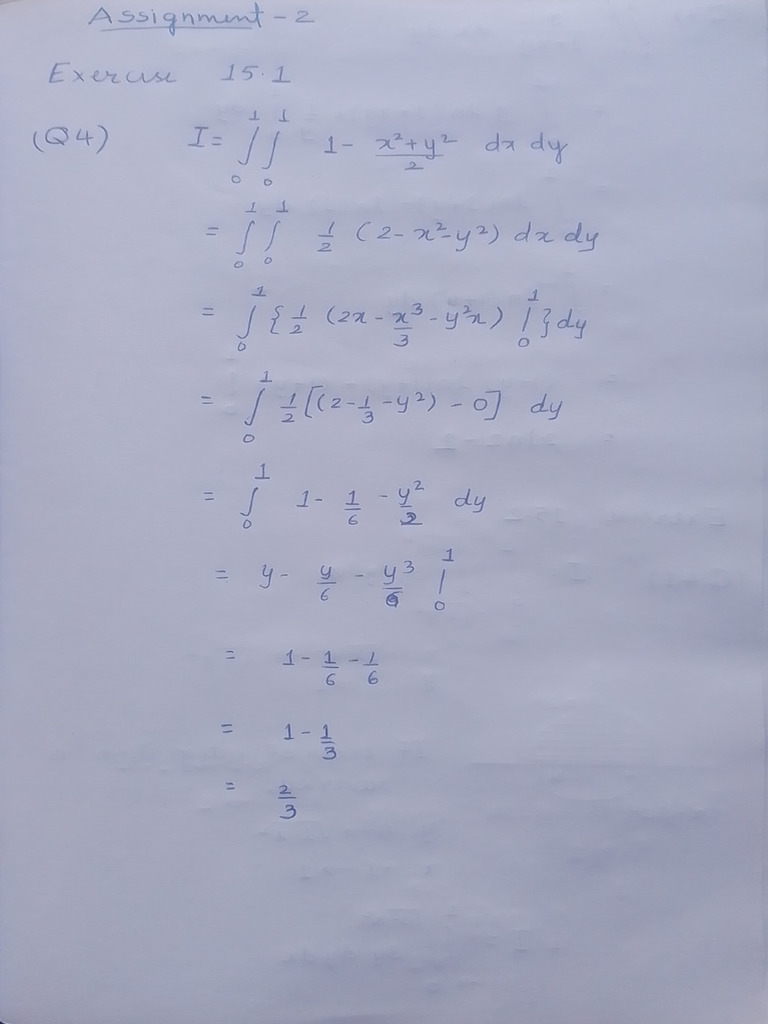 Assignment - 2
Exercise 15.1
(Q4) I = ∫₀¹ ∫₀¹ 1 - (x² + y²)/2 dx dy
= ∫₀¹ ∫₀¹ 1/2 (2 - x² - y²) dx dy
= ∫₀¹ {1/2 (2x - x³/3 - y²x) |₀¹} dy
= ∫₀¹ 1/2 [(2 - 1/3 - y²) - 0] dy
= ∫₀¹ 1 - 1/6 - y²/2 dy
= y - y/6 - y³/6 |₀¹
= 1 - 1/6 - 1/6
= 1 - 1/3
= 2/3